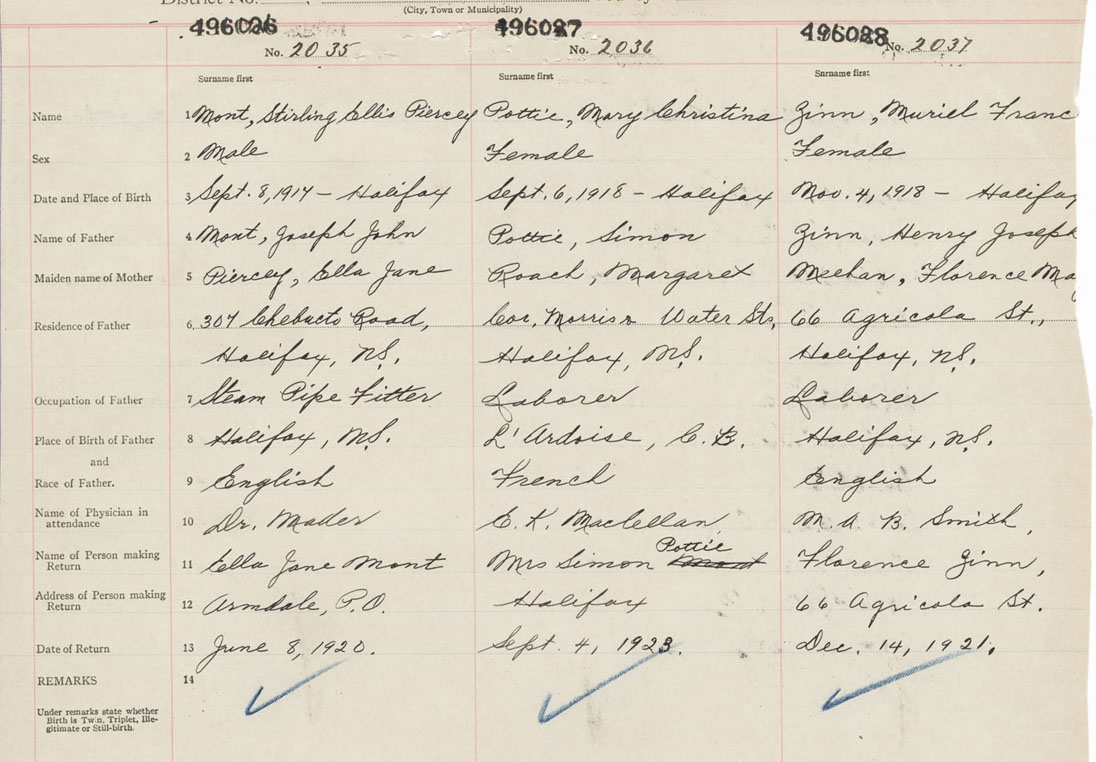 District No.
(City, Town or Municipality)
496026 496027 496028
No. 2035 No. 2036 No. 2037
Surname first Surname first Surname first
Name 1 Mont, Stirling Ellis Piercey Pottie, Mary Christina Zinn, Muriel Franc
Sex 2 Male Female Female
Date and Place of Birth 3 Sept. 8, 1917 - Halifax Sept. 6, 1918 - Halifax Nov. 4, 1918 - Halifax
Name of Father 4 Mont, Joseph John Pottie, Simon Zinn, Henry Joseph
Maiden name of Mother 5 Piercey, Ella Jane Roach, Margaret Meehan, Florence Ma
Residence of Father 6 307 Chebucto Road, Cor. Morris & Water Sts, 66 Agricola St.,
Halifax, N.S. Halifax, N.S. Halifax, N.S.
Occupation of Father 7 Steam Pipe Fitter Laborer Laborer
Place of Birth of Father 8 Halifax, N.S. L'Ardoise, C.B. Halifax, N.S.
and
Race of Father. 9 English French English
Name of Physician in
attendance 10 Dr. Mader E. K. Maclellan M. A. B. Smith,
Name of Person making
Return 11 Ella Jane Mont Mrs Simon Mont Pottie Florence Zinn,
Address of Person making
Return 12 Armdale, P.O. Halifax 66 Agricola St.
Date of Return 13 June 8, 1920. Sept. 4, 1923. Dec. 14, 1921.
REMARKS 14
Under remarks state whether
Birth is Twin, Triplet, Ille-
gitimate or Still-birth.